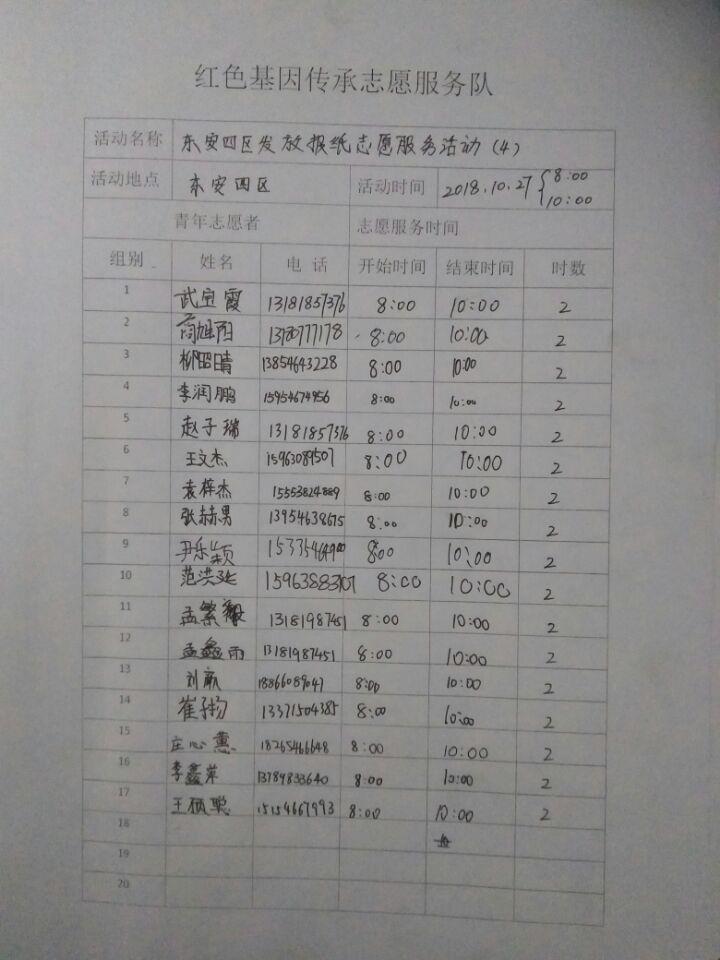 红色基因传承志愿服务队
活动名称 东安四区发放报纸志愿服务活动(4)
活动地点 东安四区 活动时间 2018.10.27 {8:00 10:00
青年志愿者 志愿服务时间
组别 姓名 电话 开始时间 结束时间 时数
1 武宝霞 13181857376 8:00 10:00 2
2 旭阳 8:00 10:00 2
3 柳昭晴 13854643228 8:00 10:00 2
4 李润鹏 15954674956 8:00 10:00 2
5 赵子瑞 13181857376 8:00 10:00 2
6 王文杰 15963089507 8:00 10:00 2
7 袁梓杰 15553824889 8:00 10:00 2
8 张赫男 13954638675 8:00 10:00 2
9 尹乐颖 8:00 10:00 2
10 范洪 8:00 10:00 2
11 孟繁 13181987451 8:00 10:00 2
12 孟鑫雨 13181987451 8:00 10:00 2
13 刘 18866089047 8:00 10:00 2
14 崔子扬 13371504385 8:00 10:00 2
15 庄心蕙 18265466648 8:00 10:00 2
16 李鑫萍 13789833640 8:00 10:00 2
17 王硕聪 15154667993 8:00 10:00 2
18
19
20